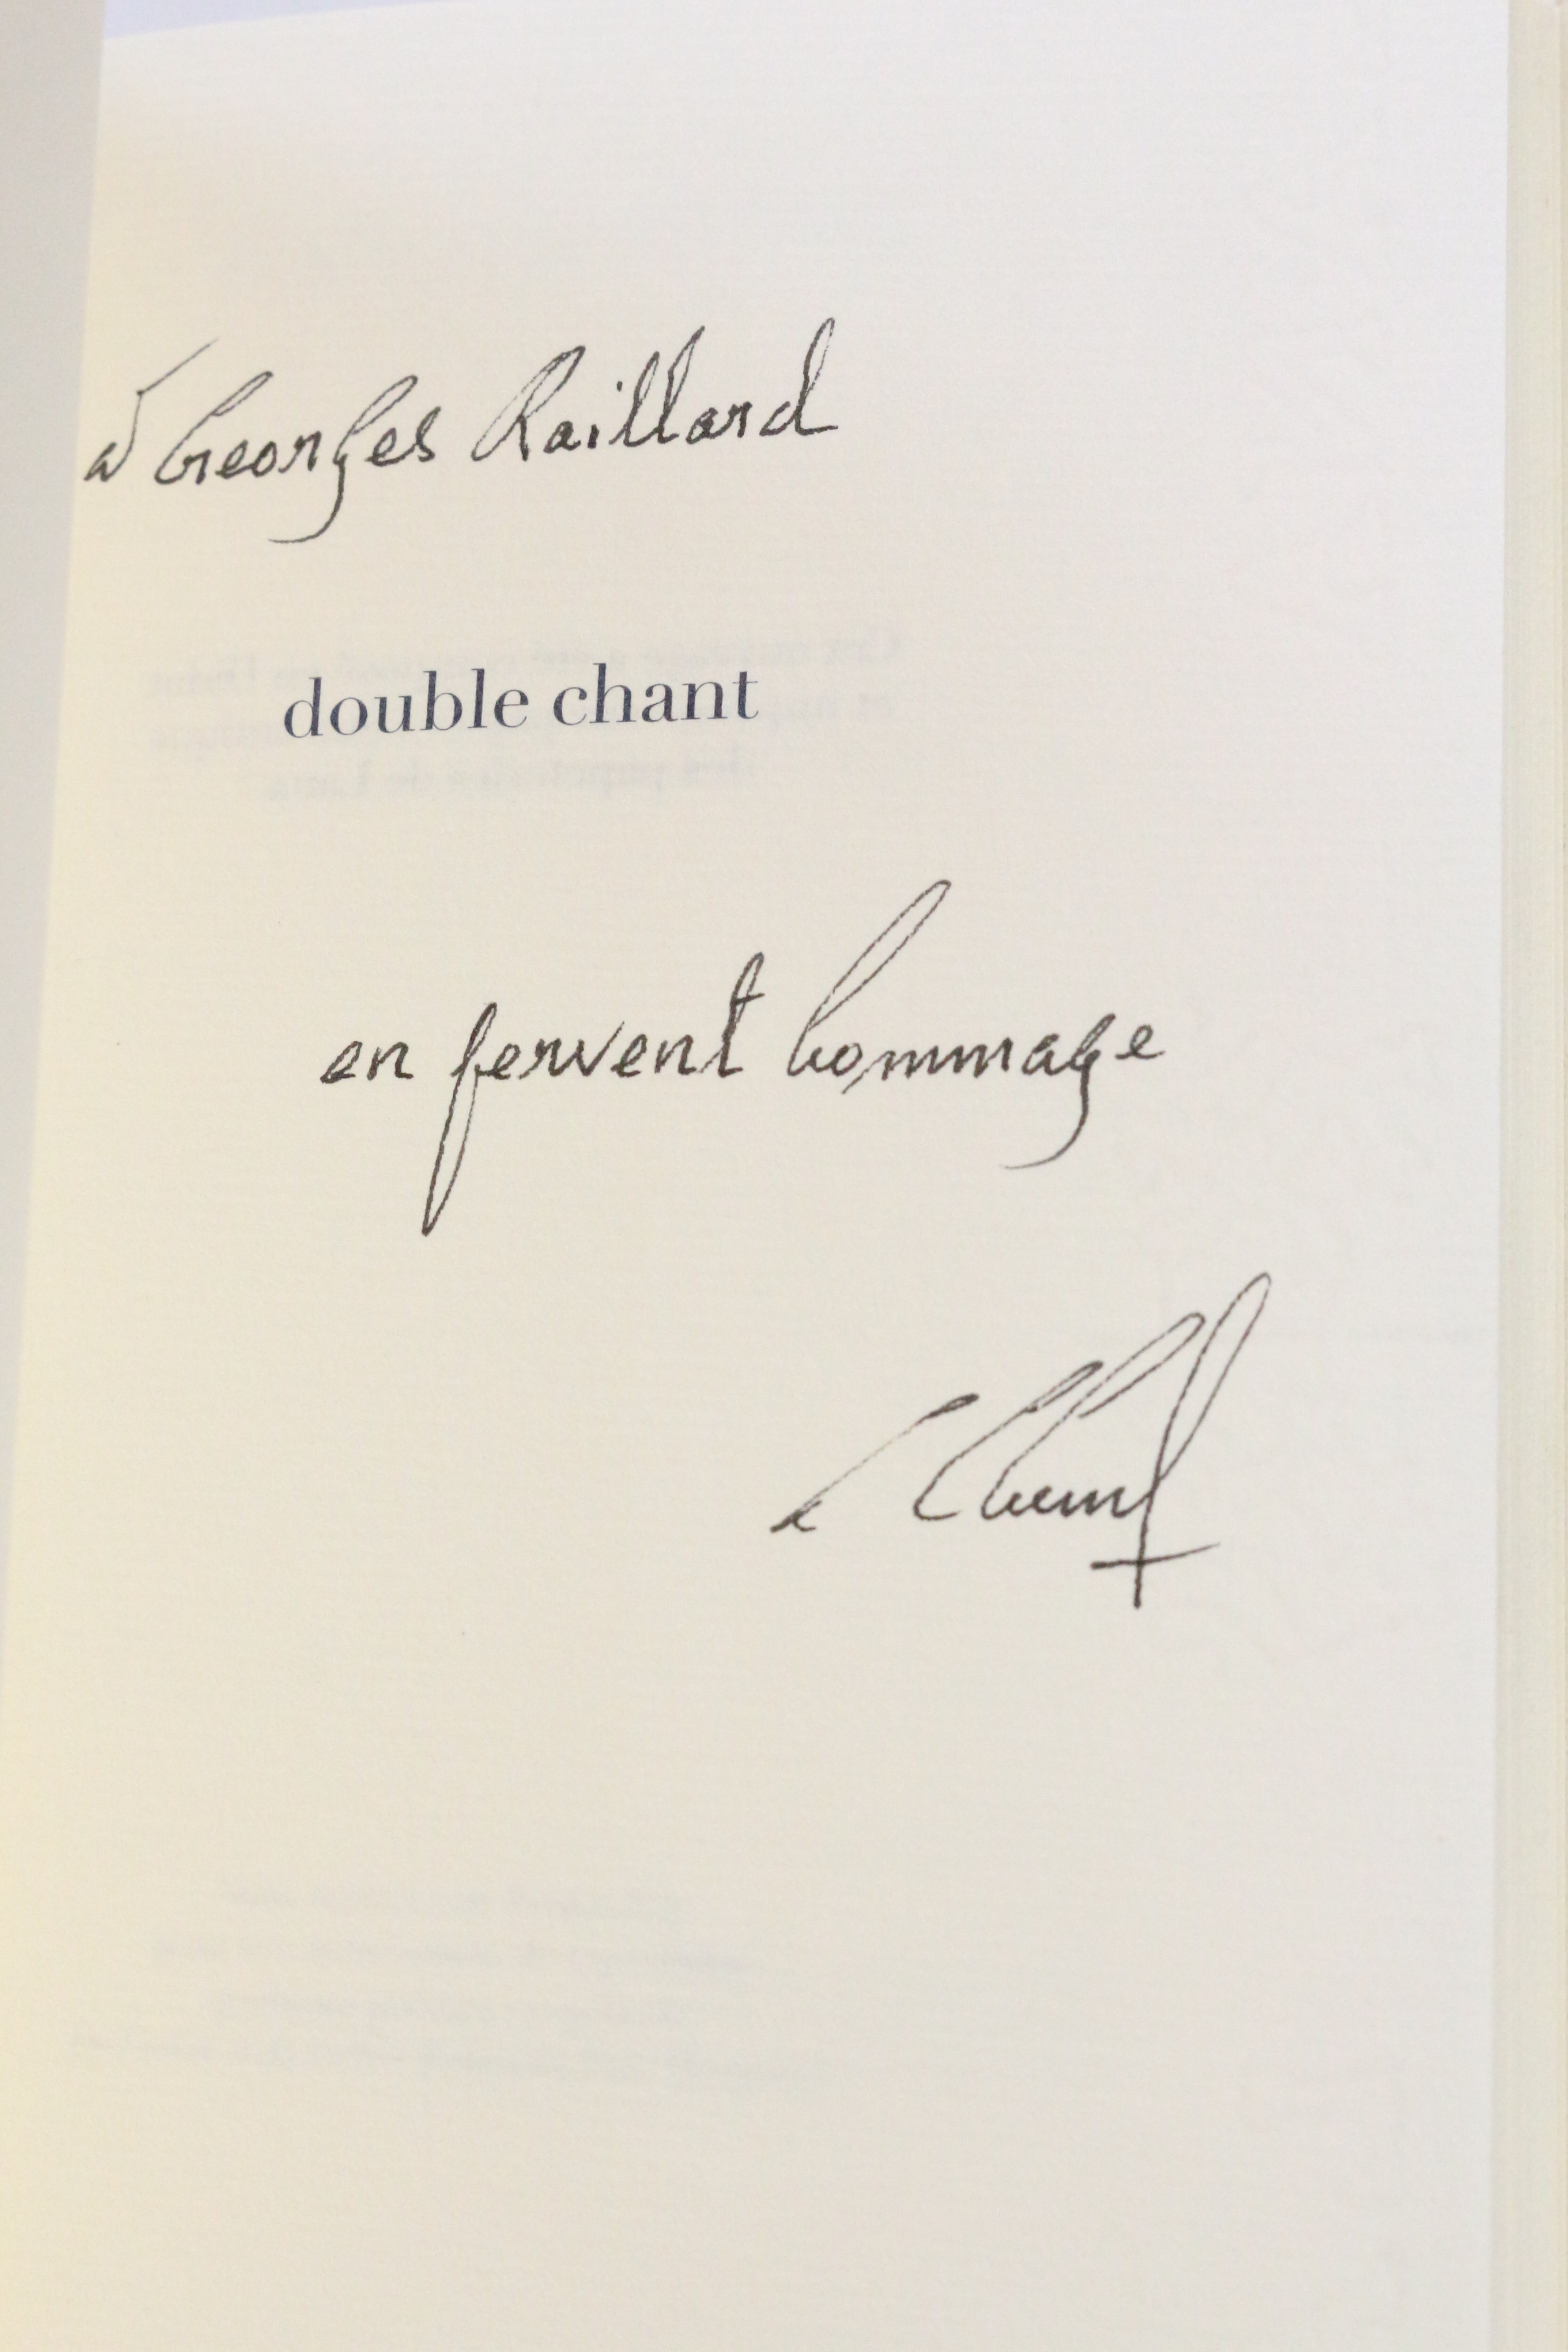 à Georges Raillard
double chant
en fervent hommage